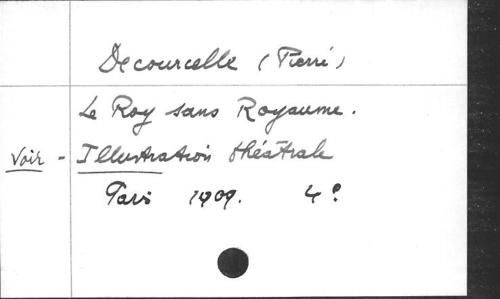 Decourcelle (Pierre)
Le Roy sans Royaume.
Voir - Illustration théâtrale
Paris 1909. 4°